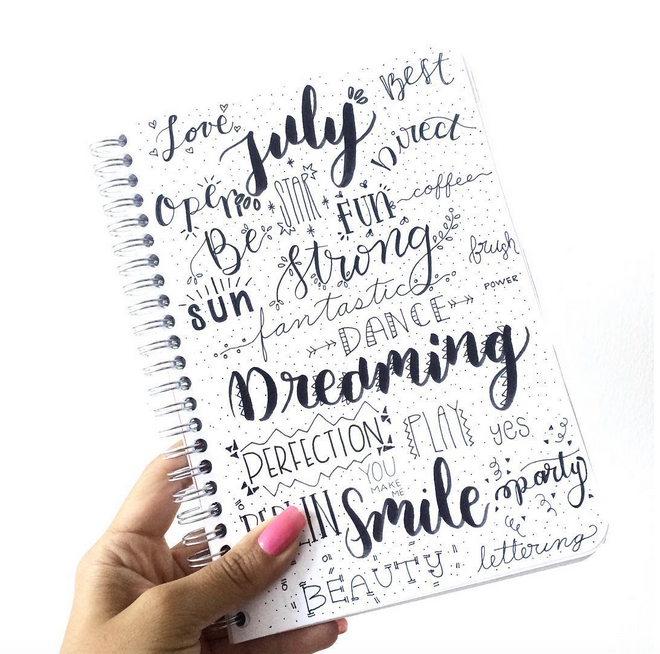 Best
Love
July
Direct
Open
STAR
FUN
coffee
Be Strong
brush
sun
fantastic
POWER
DANCE
Dreaming
PERFECTION
PLAY
yes
YOU
MAKE
ME
Smile
party
lettering
BEAUTY